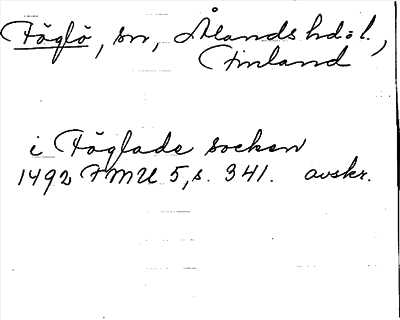 Föglö, sn, Ålands hd o l.,
Finland
i Föglade socken
1492 FMU 5, s. 341. avskr.